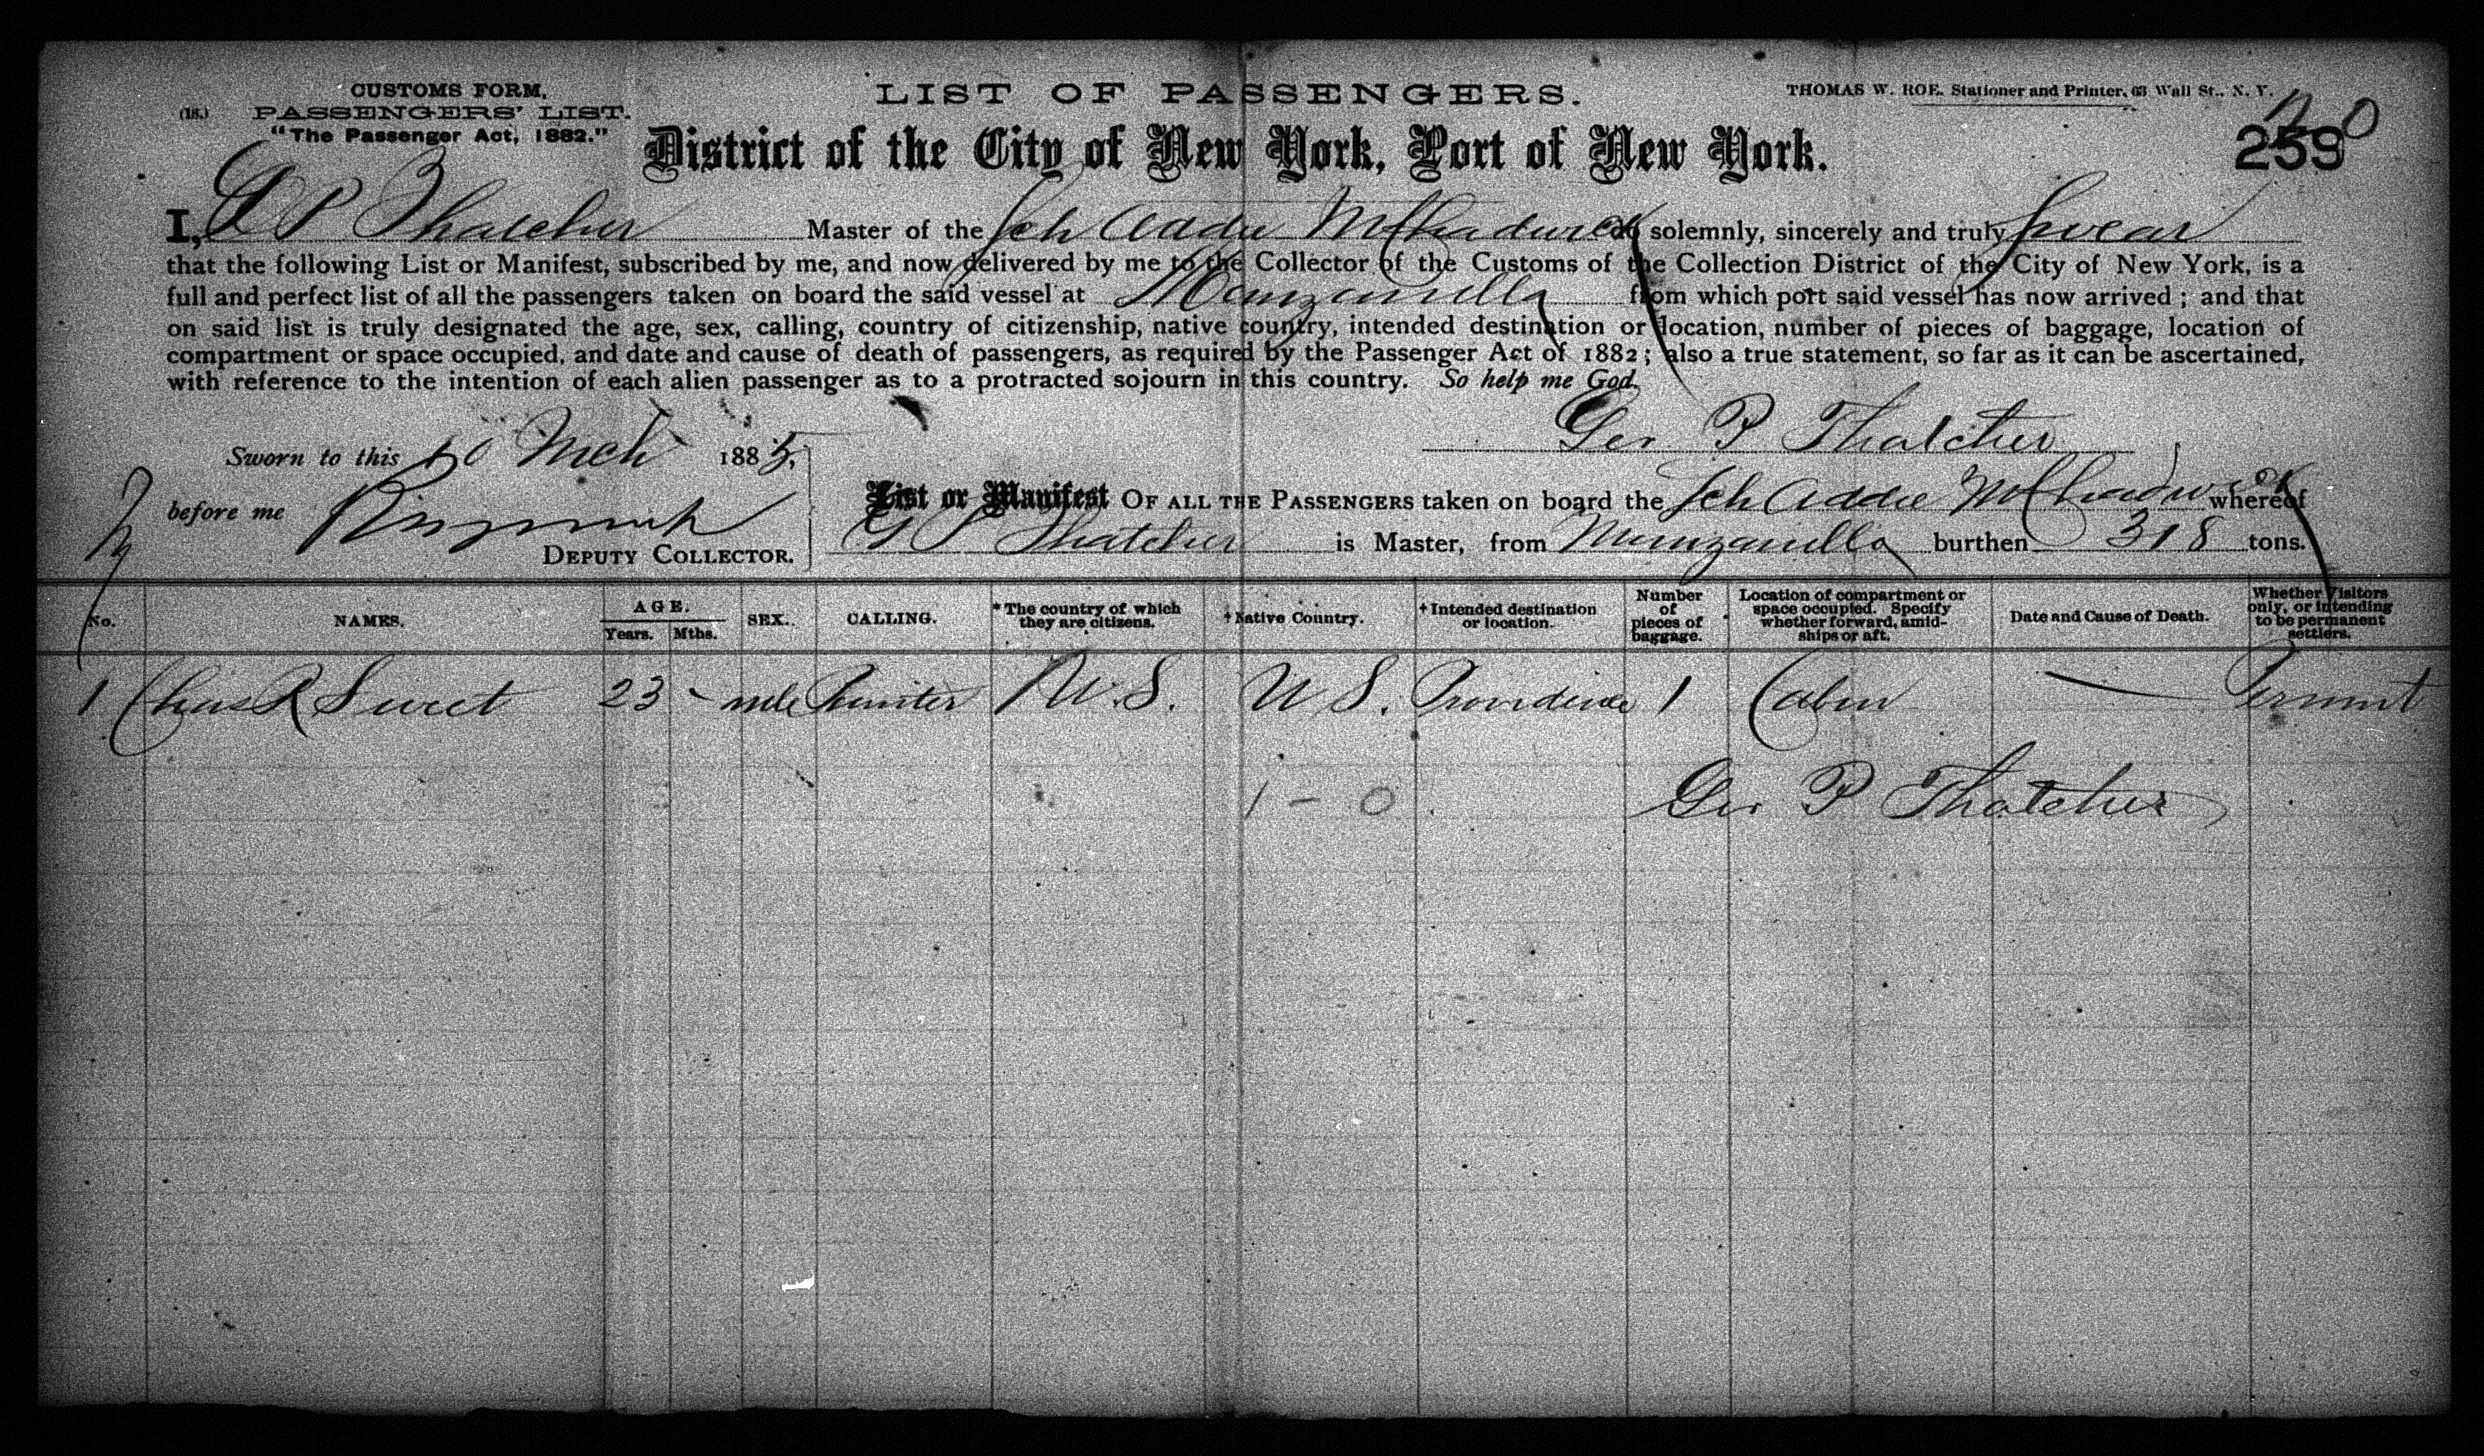 CUSTOMS FORM.
(18.) PASSENGERS' LIST.
"The Passenger Act, 1882."
LIST OF PASSENGERS.
THOMAS W. ROE. Stationer and Printer, 63 Wall St., N. Y.
District of the City of New York, Port of New York.
259
I, G P Thatcher Master of the Sch Addie do solemnly, sincerely and truly swear
that the following List or Manifest, subscribed by me, and now delivered by me to the Collector of the Customs of the Collection District of the City of New York, is a
full and perfect list of all the passengers taken on board the said vessel at Manzanilla from which port said vessel has now arrived; and that
on said list is truly designated the age, sex, calling, country of citizenship, native country, intended destination or location, number of pieces of baggage, location of
compartment or space occupied, and date and cause of death of passengers, as required by the Passenger Act of 1882; also a true statement, so far as it can be ascertained,
with reference to the intention of each alien passenger as to a protracted sojourn in this country. So help me God.
Geo P Thatcher
Sworn to this 10 Mch 1885,
before me
DEPUTY COLLECTOR.
List or Manifest OF ALL THE PASSENGERS taken on board the Sch Addie whereof
G P Thatcher is Master, from Manzanilla burthen 318 tons.
No. NAMES. AGE. Years. Mths. SEX. CALLING. * The country of which they are citizens. † Native Country. † Intended destination or location. Number of pieces of baggage. Location of compartment or space occupied. Specify whether forward, amidships or aft. Date and Cause of Death. Whether Visitors only, or intending to be permanent settlers.
1 Chas R Sweet 23 - male U.S. U S. Providence 1 Cabin — Permnt
1 - 0
Geo P Thatcher